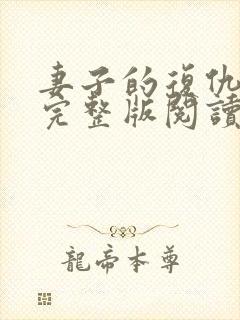 妻子的復仇
完整版閱讀
龍帝本尊